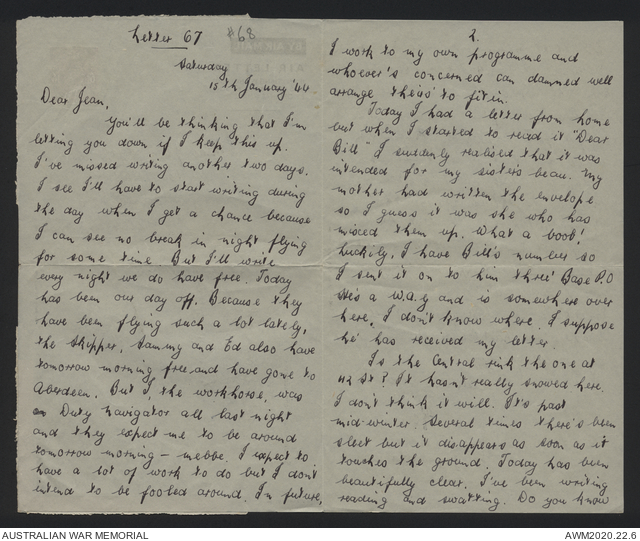 Letter 67
#68
Saturday
15th January '44
Dear Jean,
You'll be thinking that I'm
letting you down if I keep this up.
I've missed writing another two days.
I see I'll have to start writing during
the day when I get a chance because
I can see no break in night flying
for some time. But I'll write
every night we do have free. Today
has been our day off. Because they
have been flying such a lot lately,
the skipper, Sammy and Ed also have
tomorrow morning free and have gone to
Aberdeen. But I, the workhorse, was
on Duty Navigator all last night
and they expect me to be around
tomorrow morning – mebbe. I expect to
have a lot of work to do but I don't
intend to be fooled around. In future,
2.
I work to my own programme and
whoever's concerned can damned well
arrange theirs to fit in.
Today I had a letter from home
but when I started to read it "Dear
Bill" I suddenly realised that it was
intended for my sister's beau. My
mother had written the envelope
so I guess it was she who has
mixed them up. What a boob!
Luckily, I have Bill's number so
I sent it on to him thro' Base P.O
He's a W.A.G and is somewhere over
here. I don't know where. I suppose
he has received my letter.
Is the Central rink the one at
42 St? It hasn't really snowed here.
I don't think it will. It's past
mid-winter. Several times there's been
sleet but it disappears as soon as it
touches the ground. Today has been
beautifully clear. I've been writing
reading and swatting. Do you know
AUSTRALIAN WAR MEMORIAL
AWM2020.22.6